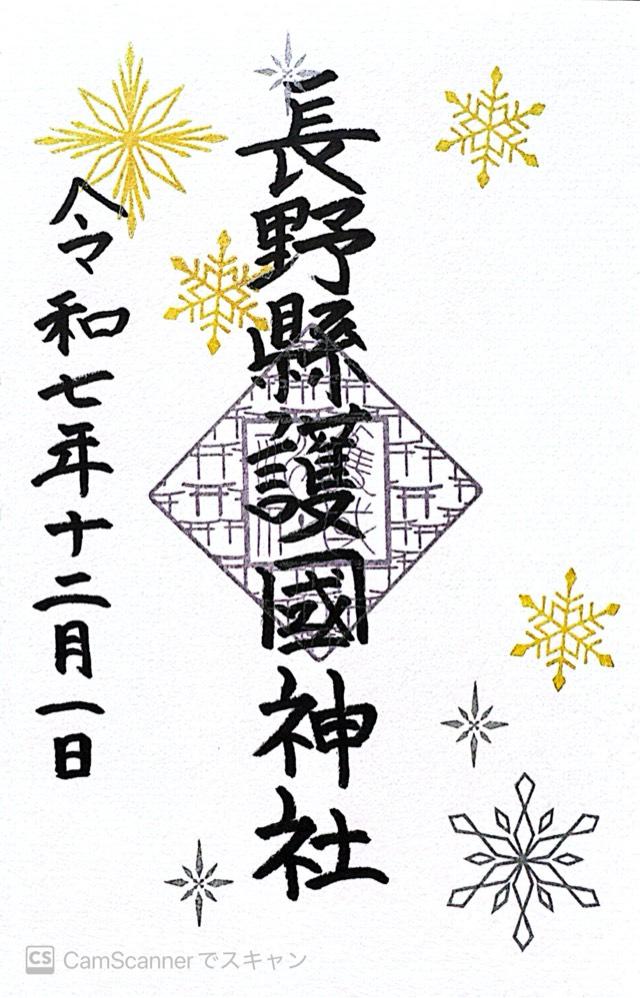 長野縣護國神社
令和七年十二月一日
CS CamScannerでスキャン